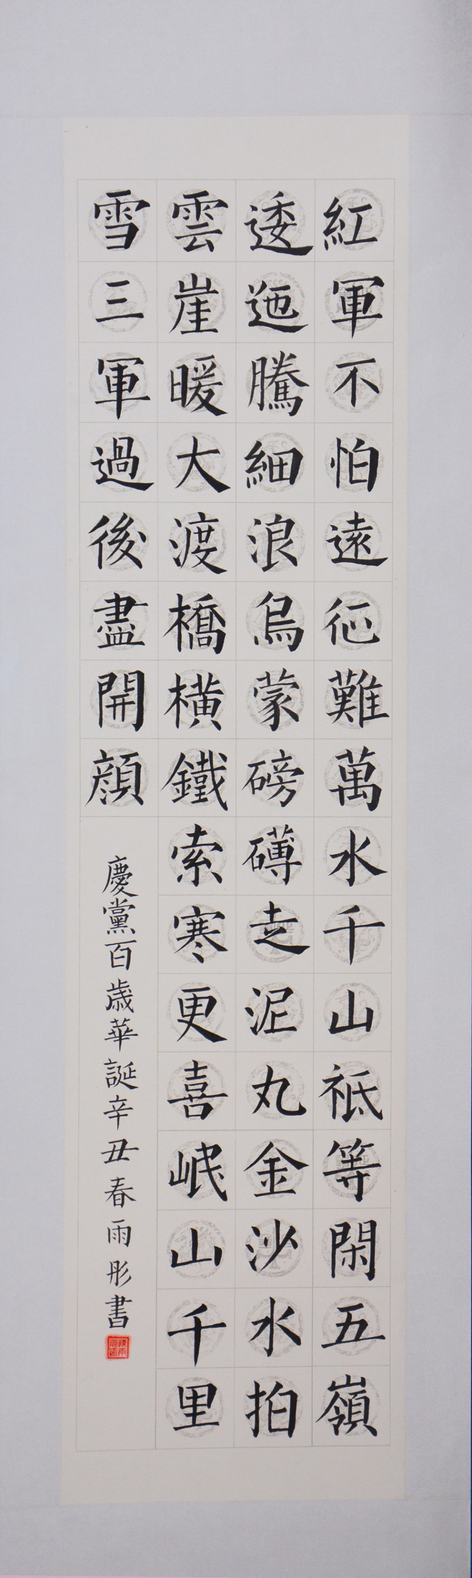 紅軍不怕遠征難萬水千山祗等閑五嶺
逶迤騰細浪烏蒙磅礴走泥丸金沙水拍
雲崖暖大渡橋橫鐵索寒更喜岷山千里
雪三軍過後盡開顏
慶黨百歲華誕辛丑春雨彤書